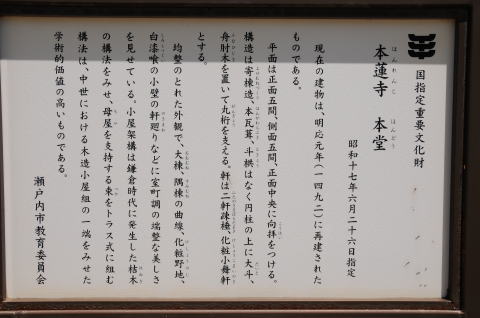 国指定重要文化財
本蓮寺 本堂
ほんれんじ ほんどう
昭和十七年六月二十六日指定
現在の建物は、明応元年(一四九二)に再建された
ものである。
平面は正面五間、側面五間、正面中央に向拝をつける。
構造は寄棟造、本瓦葺、斗栱はなく円柱の上に大斗、
舟肘木を置いて丸桁を支える。軒は二軒疎棰、化粧小舞軒
とする。
均整のとれた外観で、大棟、隅棟の曲線、化粧野地、
白漆喰の小壁の軒廻りなどに室町調の端整な美しさ
を見せている。小屋架構は鎌倉時代に発生した桔木
の構法をみせ、母屋を支持する束をトラス式に組む
構法は、中世における木造小屋組の一端をみせた
学術的価値の高いものである。
瀬戸内市教育委員会